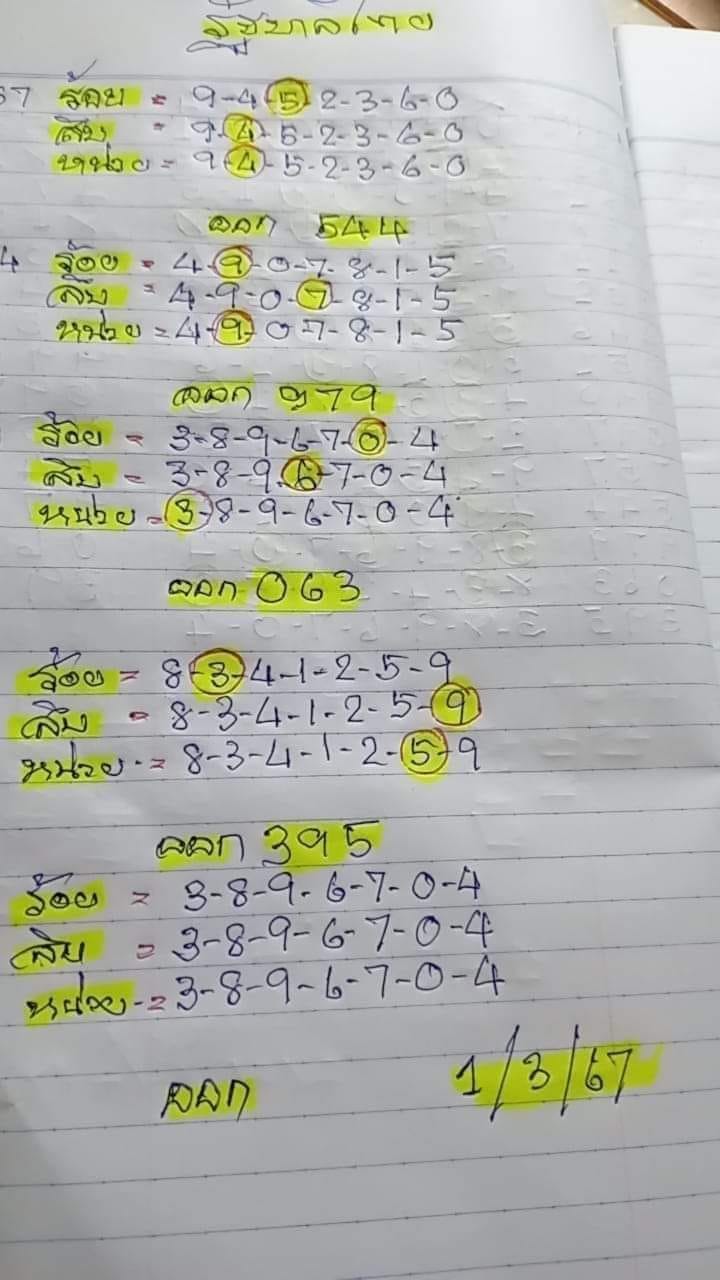 รัฐบาลไทย
67 ร้อย = 9-4-5-2-3-6-0
สิบ = 9-4-5-2-3-6-0
หน่วย = 9-4-5-2-3-6-0
ออก 544
4 ร้อย = 4-9-0-7-8-1-5
สิบ = 4-9-0-7-8-1-5
หน่วย = 4-9-0-7-8-1-5
ออก 979
ร้อย = 3-8-9-6-7-0-4
สิบ = 3-8-9-6-7-0-4
หน่วย = 3-8-9-6-7-0-4
ออก 063
ร้อย = 8-3-4-1-2-5-9
สิบ = 8-3-4-1-2-5-9
หน่วย = 8-3-4-1-2-5-9
ออก 395
ร้อย = 3-8-9-6-7-0-4
สิบ = 3-8-9-6-7-0-4
หน่วย = 3-8-9-6-7-0-4
ออก 1/3/67